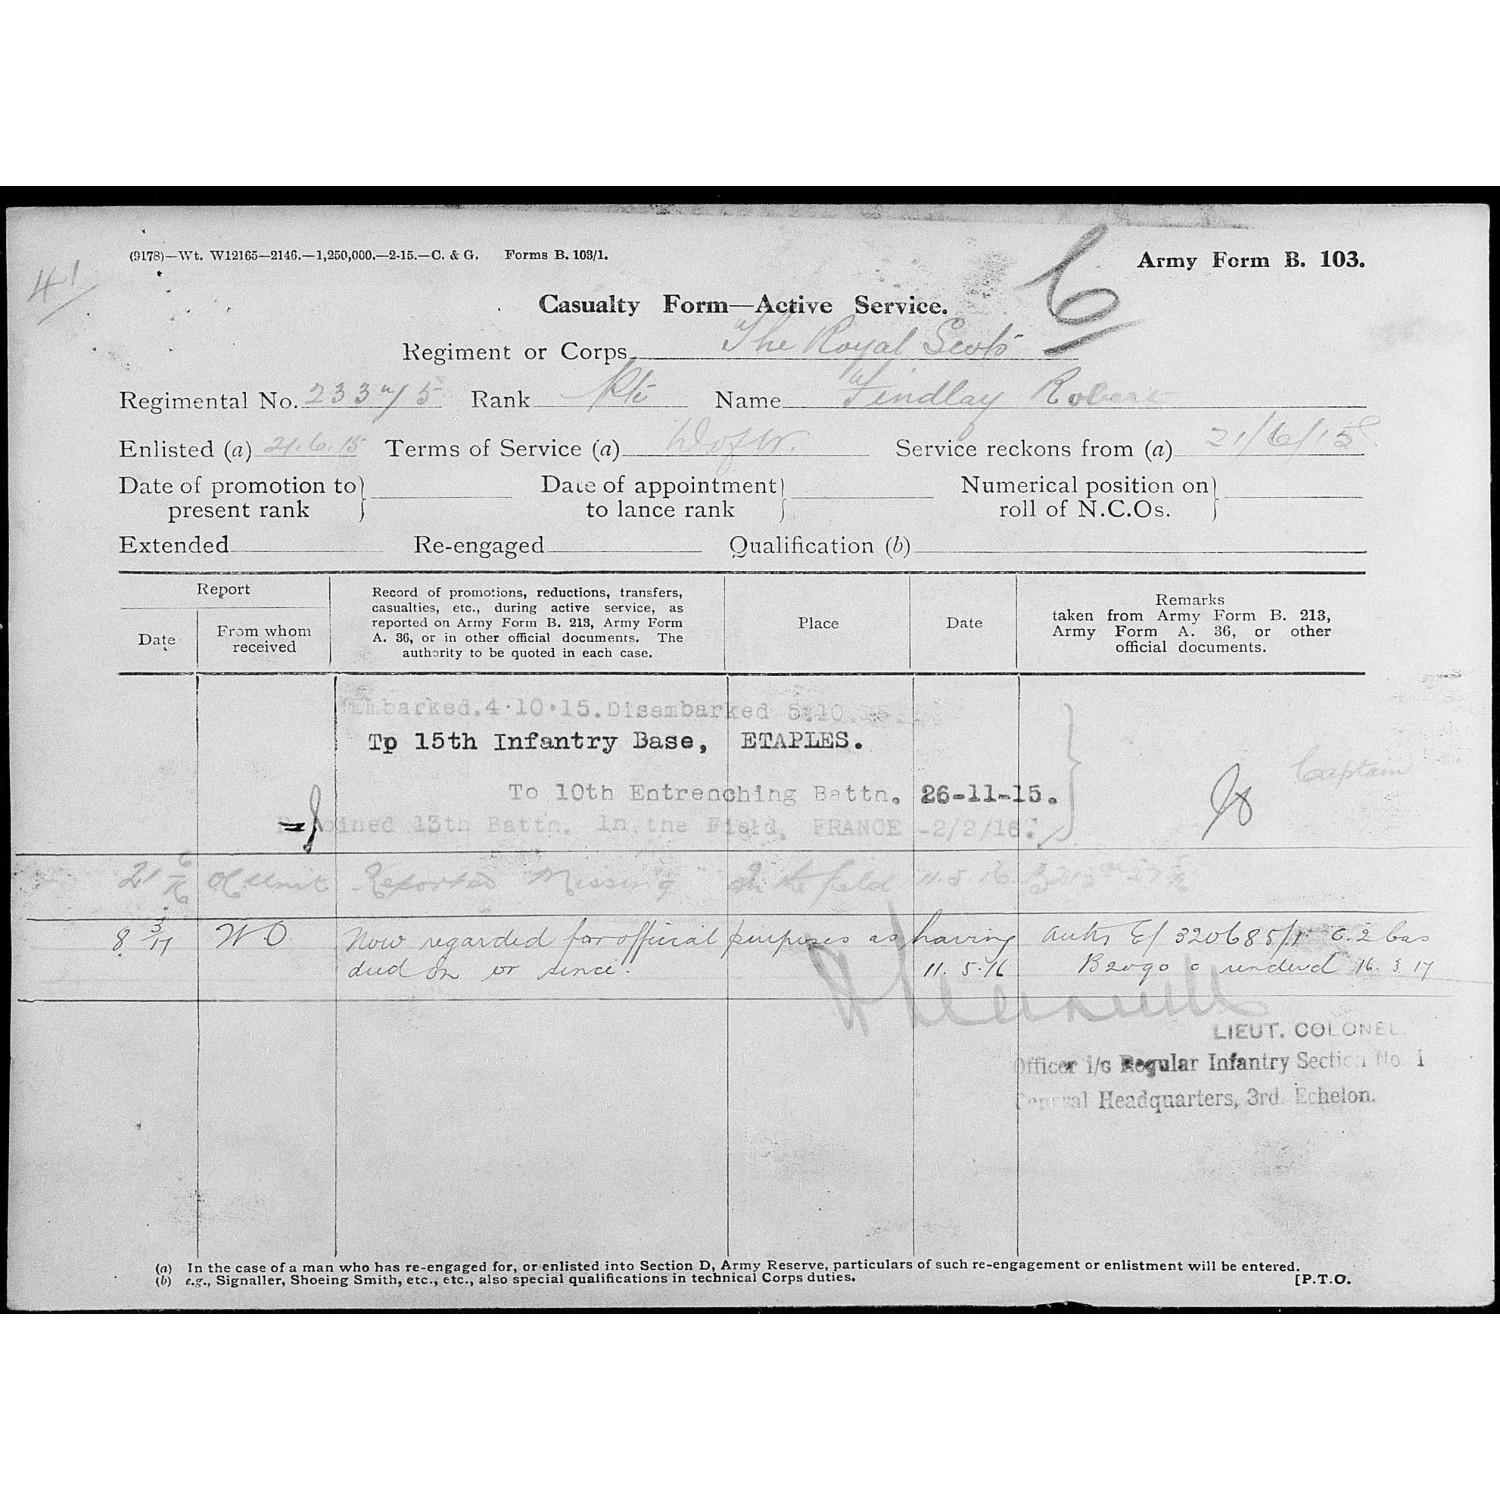 (9178)—Wt. W12165—2146.—1,250,000.—2-15.—C. & G. Forms B. 103/1.
Army Form B. 103.
41
Casualty Form—Active Service.
Regiment or Corps The Royal Scots
Regimental No. Rank Pte Name Findlay Robert
Enlisted (a) 21.6.15 Terms of Service (a) D of W. Service reckons from (a) 21/6/15
Date of promotion to present rank
Date of appointment to lance rank
Numerical position on roll of N.C.Os.
Extended Re-engaged Qualification (b)
Report
Date
From whom received
Record of promotions, reductions, transfers,
casualties, etc., during active service, as
reported on Army Form B. 213, Army Form
A. 36, or in other official documents. The
authority to be quoted in each case.
Place
Date
Remarks
taken from Army Form B. 213,
Army Form A. 36, or other
official documents.
Embarked. 4·10·15. Disembarked 5.10.15.
To 15th Infantry Base, ETAPLES.
Captain
To 10th Entrenching Battn. 26-11-15.
Rejoined 13th Battn. In the Field, FRANCE -2/2/16.
21 6/16 OC Unit Reported "Missing" In the field 11.5.16
8 3/17 W.O. Now regarded for official purposes as having Auth E/
died on or since. 11.5.16 16.3.17
LIEUT. COLONEL.
Officer i/c Regular Infantry Section No. 1
General Headquarters, 3rd. Echelon.
(a) In the case of a man who has re-engaged for, or enlisted into Section D, Army Reserve, particulars of such re-engagement or enlistment will be entered.
(b) e.g., Signaller, Shoeing Smith, etc., etc., also special qualifications in technical Corps duties.
[P.T.O.